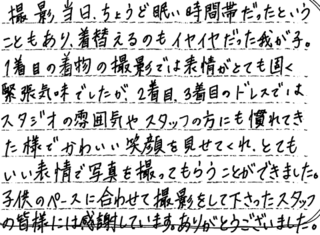 撮影当日、ちょうど眠い時間帯だったという
こともあり、着替えるのもイヤイヤだった我が子。
1着目の着物の撮影では表情がとても固く
緊張気味でしたが、2着目、3着目のドレスでは
スタジオの雰囲気やスタッフの方にも慣れてき
た様でかわいい笑顔を見せてくれ、とても
いい表情で写真を撮ってもらうことができました。
子供のペースに合わせて撮影をして下さったスタッフ
の皆様には感謝しています。ありがとうございました。